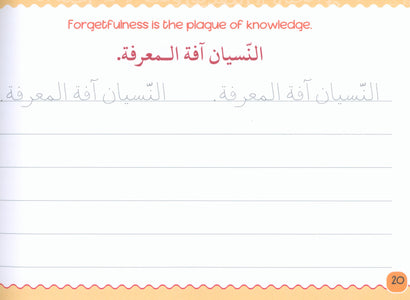 Forgetfulness is the plague of knowledge.
النّسيان آفة الـمعرفة.
النّسيان آفة المعرفة. النّسيان آفة المعرفة.
20